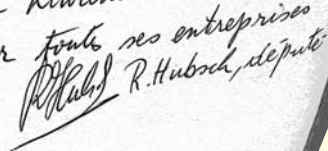 toutes ses entreprises
R. Hubsch, député